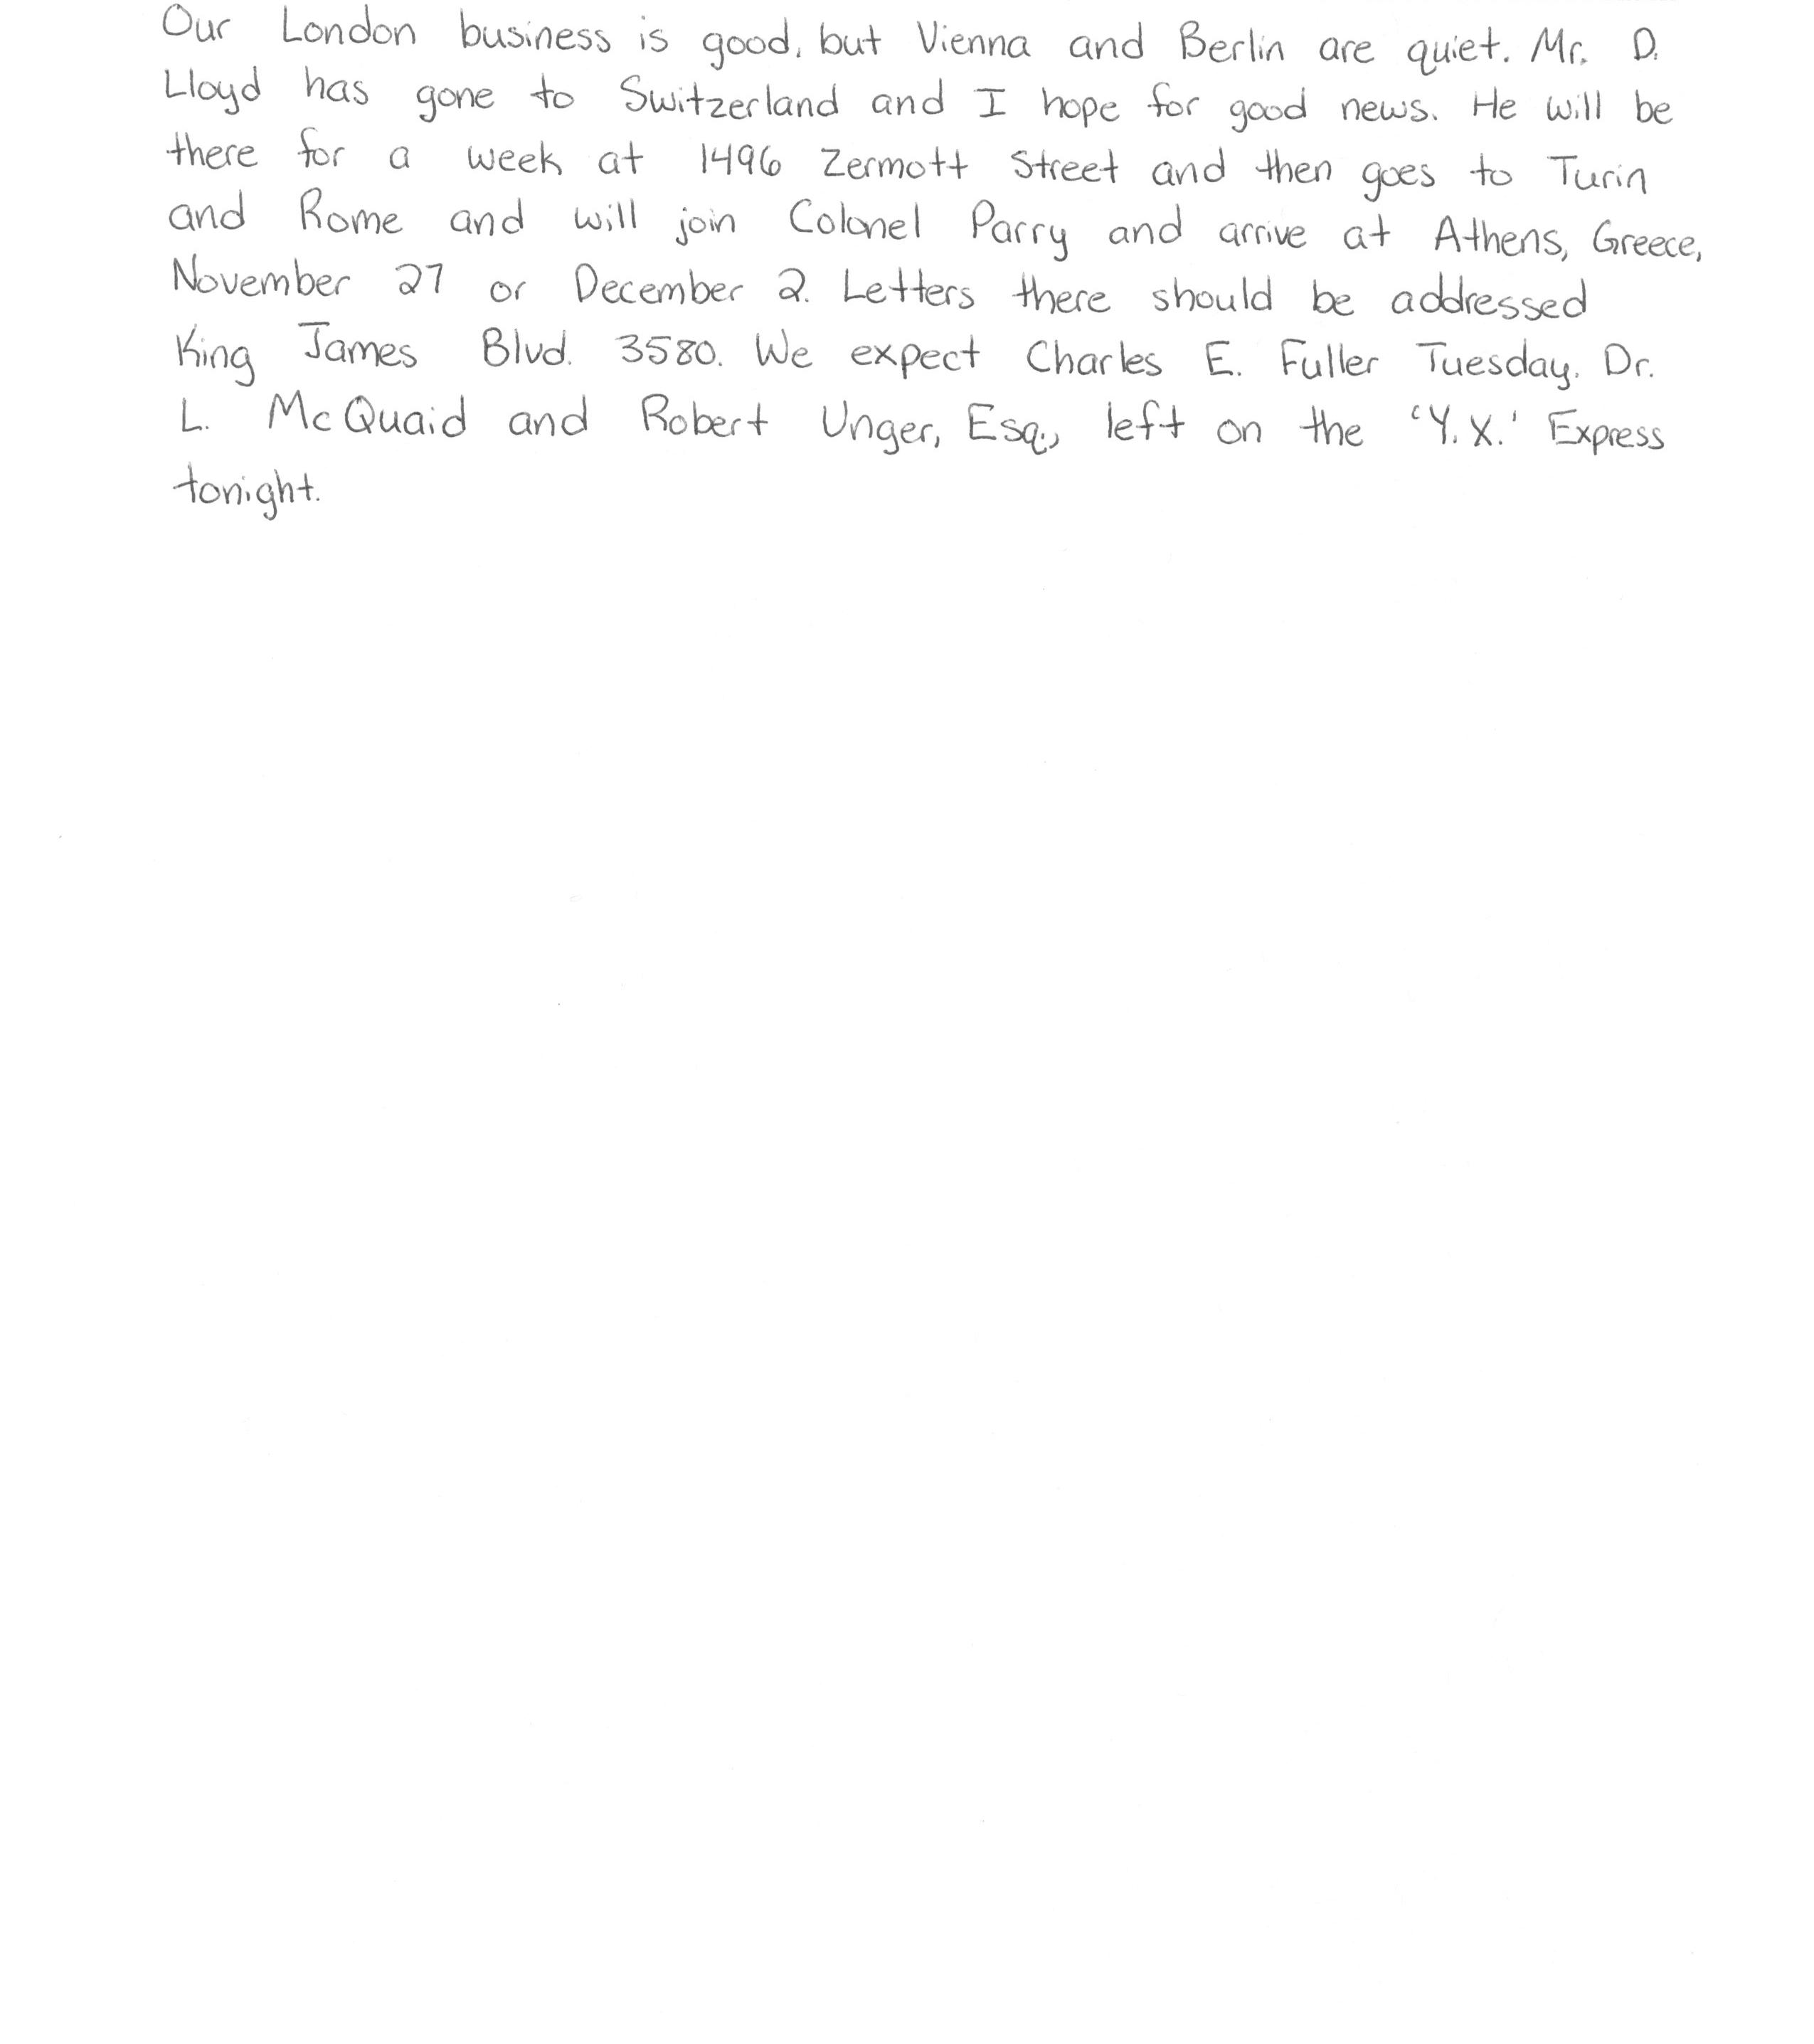 Our London business is good, but Vienna and Berlin are quiet. Mr. D.
Lloyd has gone to Switzerland and I hope for good news. He will be
there for a week at 1496 Zermott Street and then goes to Turin
and Rome and will join Colonel Parry and arrive at Athens, Greece,
November 27 or December 2. Letters there should be addressed
King James Blvd. 3580. We expect Charles E. Fuller Tuesday. Dr.
L. McQuaid and Robert Unger, Esq., left on the 'Y.X.' Express
tonight.